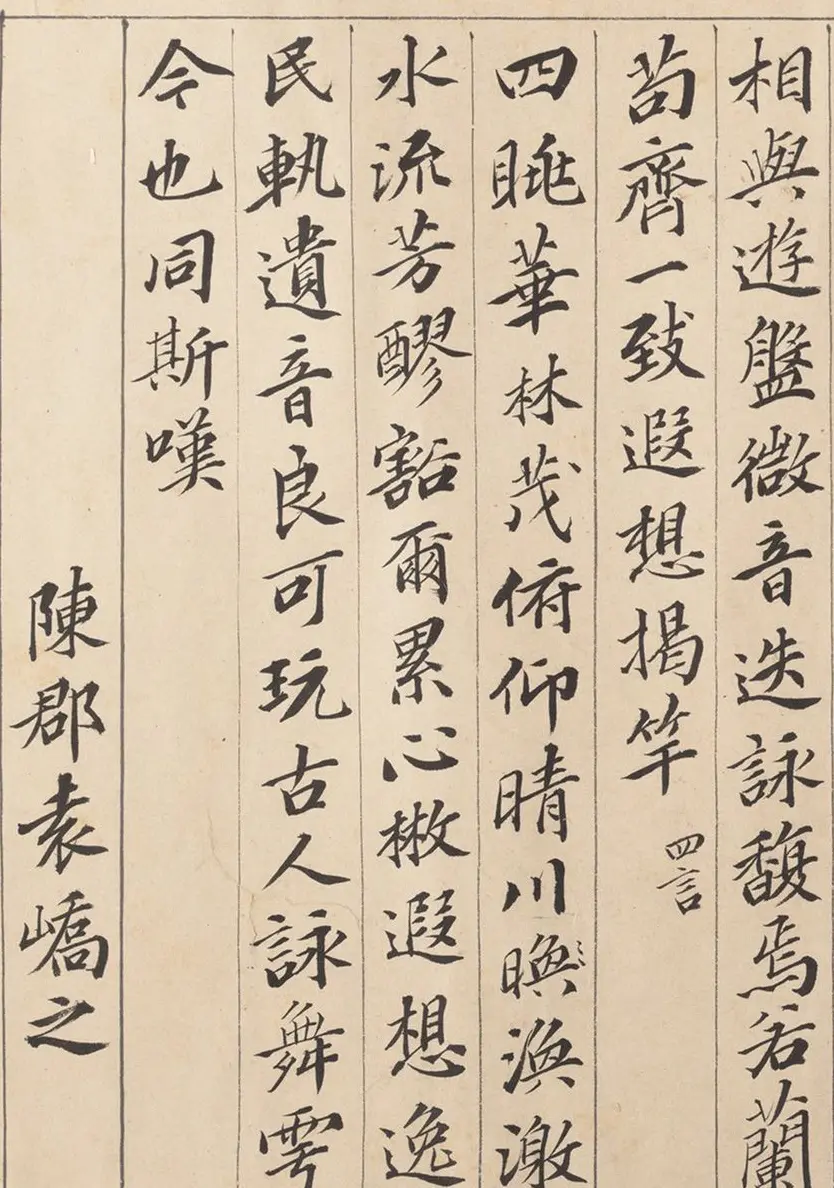 相與遊盤微音迭詠馥焉若蘭
苟齊一致遐想揭竿 四言
四眺華林茂俯仰晴川暎渙激
水流芳醪豁爾累心散遐想逸
民軌遺音良可玩古人詠舞雩
今也同斯嘆
陳郡袁嶠之